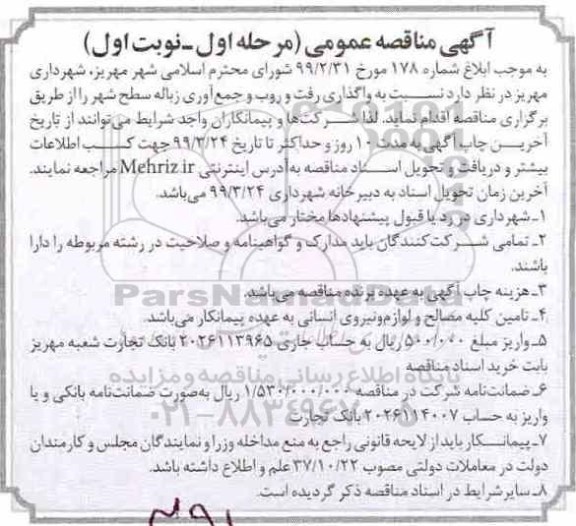 آگهی مناقصه عمومی (مرحله اول ـ نوبت اول)
به موجب ابلاغ شماره ۱۷۸ مورخ ۹۹/۲/۳۱ شورای محترم اسلامی شهر مهریز، شهرداری
مهریز در نظر دارد نسبت به واگذاری رفت و روب و جمع‌آوری زباله سطح شهر را از طریق
برگزاری مناقصه اقدام نماید. لذا شرکت‌ها و پیمانکاران واجد شرایط می‌توانند از تاریخ
آخرین چاپ آگهی به مدت ۱۰ روز و حداکثر تا تاریخ ۹۹/۳/۲۴ جهت کسب اطلاعات
بیشتر و دریافت و تحویل اسناد مناقصه به آدرس اینترنتی Mehriz.ir مراجعه نمایند.
آخرین زمان تحویل اسناد به دبیرخانه شهرداری ۹۹/۳/۲۴ می‌باشد.
۱ـ شهرداری در رد یا قبول پیشنهادها مختار می‌باشد.
۲ـ تمامی شرکت‌کنندگان باید مدارک و گواهینامه و صلاحیت در رشته مربوطه را دارا
باشند.
۳ـ هزینه چاپ آگهی به عهده برنده مناقصه می‌باشد.
ParsNamadData
۴ـ تامین کلیه مصالح و لوازم و نیروی انسانی به عهده پیمانکار می‌باشد.
۵ـ واریز مبلغ ۵۰۰/۰۰۰ ریال به حساب جاری ۲۰۲۶۱۱۳۹۶۵ بانک تجارت شعبه مهریز
بابت خرید اسناد مناقصه
پایگاه اطلاع رسانی مناقصه و مزایده
۶ـ ضمانت‌نامه شرکت در مناقصه ۱/۵۳۰/۰۰۰/۰۰۰ ریال به‌صورت ضمانت‌نامه بانکی و یا
واریز به حساب ۲۰۲۶۱۱۴۰۰۷ بانک تجارت
۰۲۱-۸۸۳۴۹۶۷۰
۷ـ پیمانکار باید از لایحه قانونی راجع به منع مداخله وزرا و نمایندگان مجلس و کارمندان
دولت در معاملات دولتی مصوب ۳۷/۱۰/۲۲ علم و اطلاع داشته باشد.
۸ـ سایر شرایط در اسناد مناقصه ذکر گردیده است.